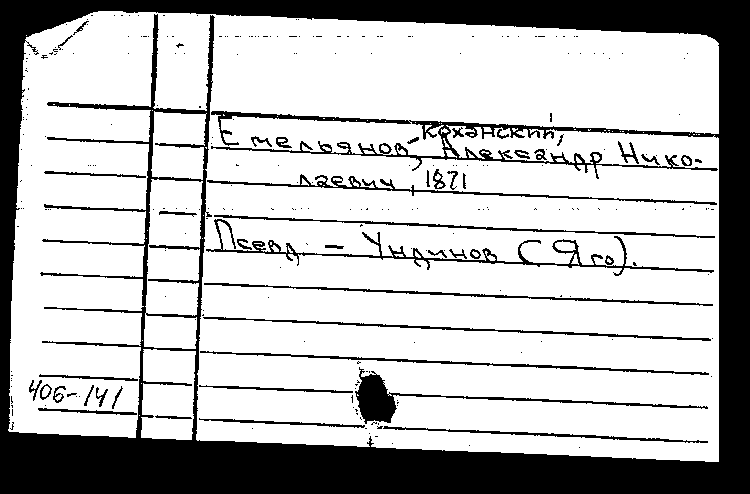 Емельянов-Коханский,
Александр Нико-
лаевич, 1871
Псевд. – Ундинов (Яго).
406-141